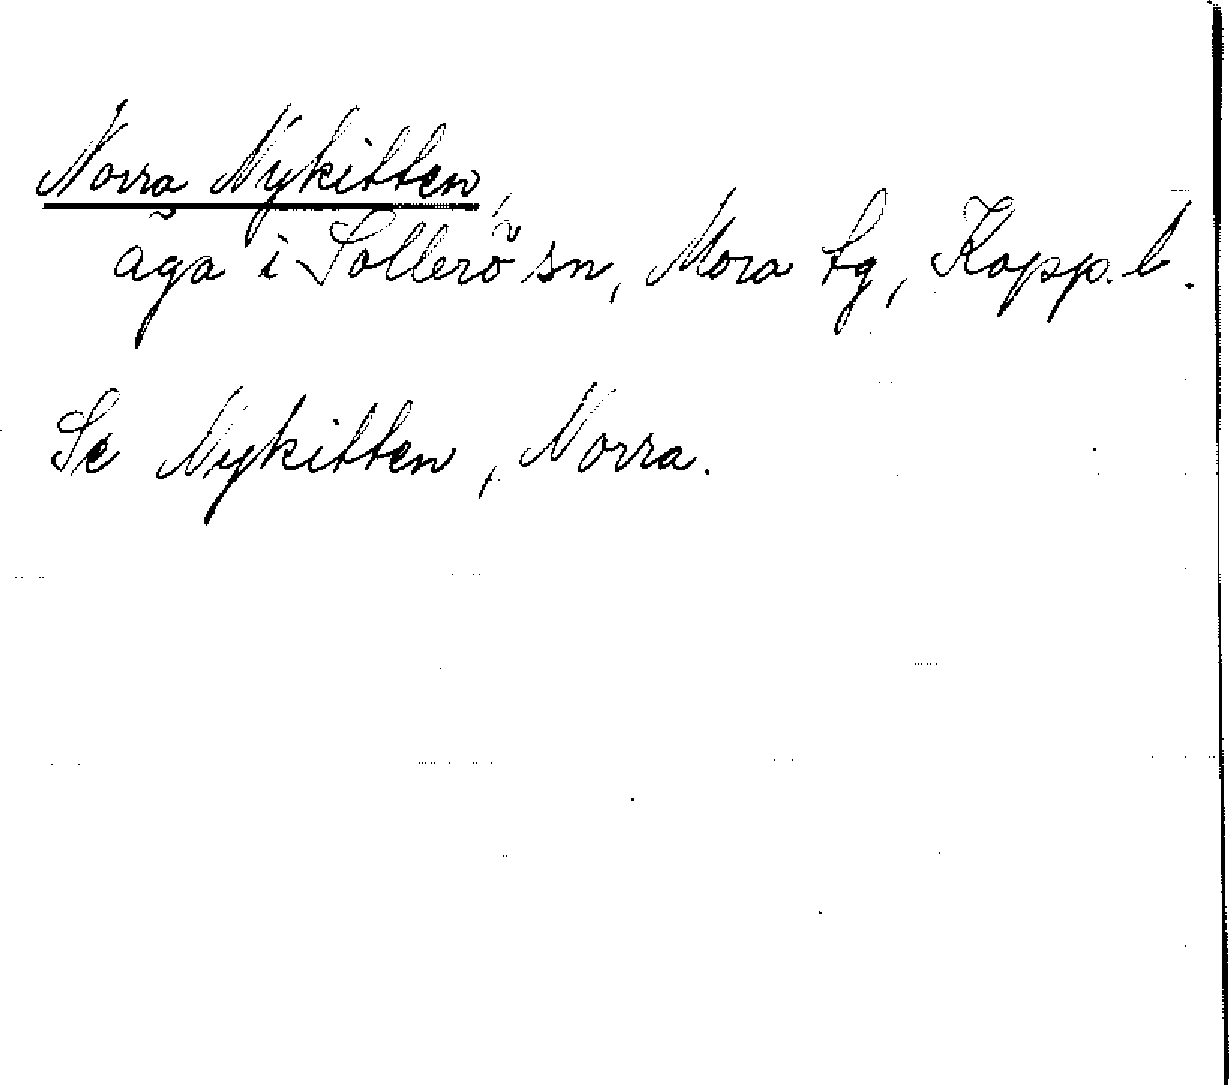 Norra Nykitten,
äga i Sollerö sn, Mora tg, Kopp. l.
Se Nykitten, Norra.